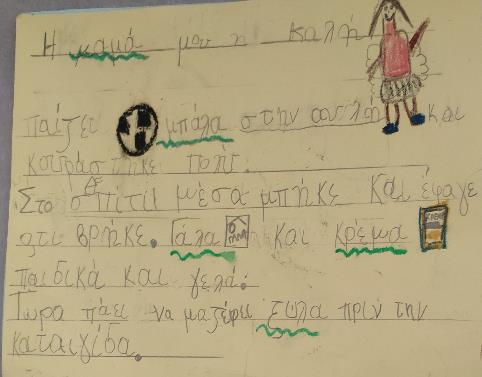 Η μαμά μου η καλή
παίζει μπάλα στην αυλή και
κουράστηκε πολύ.
Στο σπίτι μέσα μπήκε και έφαγε
ότι βρήκε. Γάλα και κρέμα
παιδικά και γελά.
Τώρα πάει να μαζέψει ξύλα πρίν την
καταιγίδα.